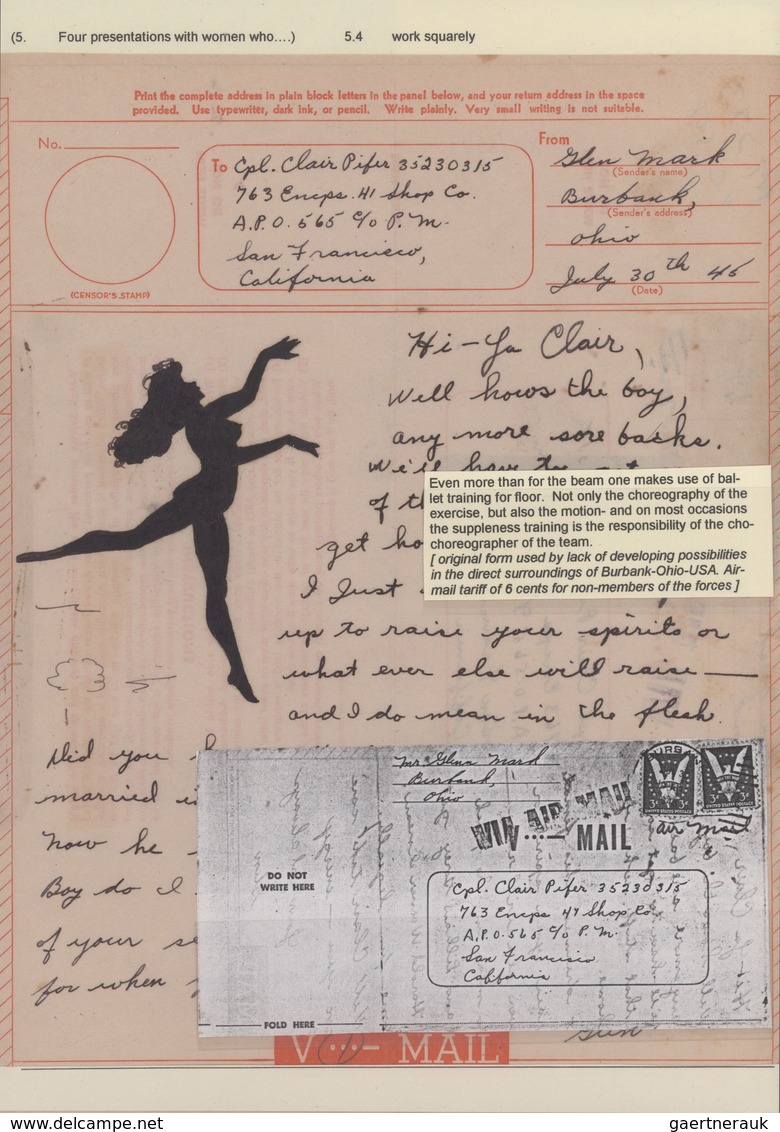 (5. Four presentations with women who....) 5.4 work squarely
Print the complete address in plain block letters in the panel below, and your return address in the space
provided. Use typewriter, dark ink, or pencil. Write plainly. Very small writing is not suitable.
No.
(CENSOR'S STAMP)
To Cpl. Clair Pifer 35230315
763 Engps. H Shop Co.
A.P.O. 565 c/o P.M.
San Francisco,
California
From
Glen Mark
(Sender's name)
Burbank,
(Sender's address)
Ohio
July 30th 45
(Date)
Hi-Ya Clair,
Well hows the boy,
any more sore backs.
We'll have
of
get
I Just
up to raise your spirits or
what ever else will raise —
and I do mean in the flesh.
Even more than for the beam one makes use of bal-
let training for floor. Not only the choreography of the
exercise, but also the motion- and on most occasions
the suppleness training is the responsibility of the cho-
choreographer of the team.
[ original form used by lack of developing possibilities
in the direct surroundings of Burbank-Ohio-USA. Air-
mail tariff of 6 cents for non-members of the forces ]
Did you
married
now he
Boy do I
of your
for when
Mr. Glenn Mark
Burbank,
Ohio
VIA AIR MAIL
V ···— MAIL
UNITED STATES POSTAGE
UNITED STATES POSTAGE
3¢ 3¢
3¢ 3¢
air Mail
DO NOT
WRITE HERE
Cpl. Clair Pifer 35230315
763 Engps 47 Shop Co.
A.P.O. 565 c/o P.M.
San Francisco
California
FOLD HERE
V ···— MAIL
www.delcampe.net
gaertnerauk